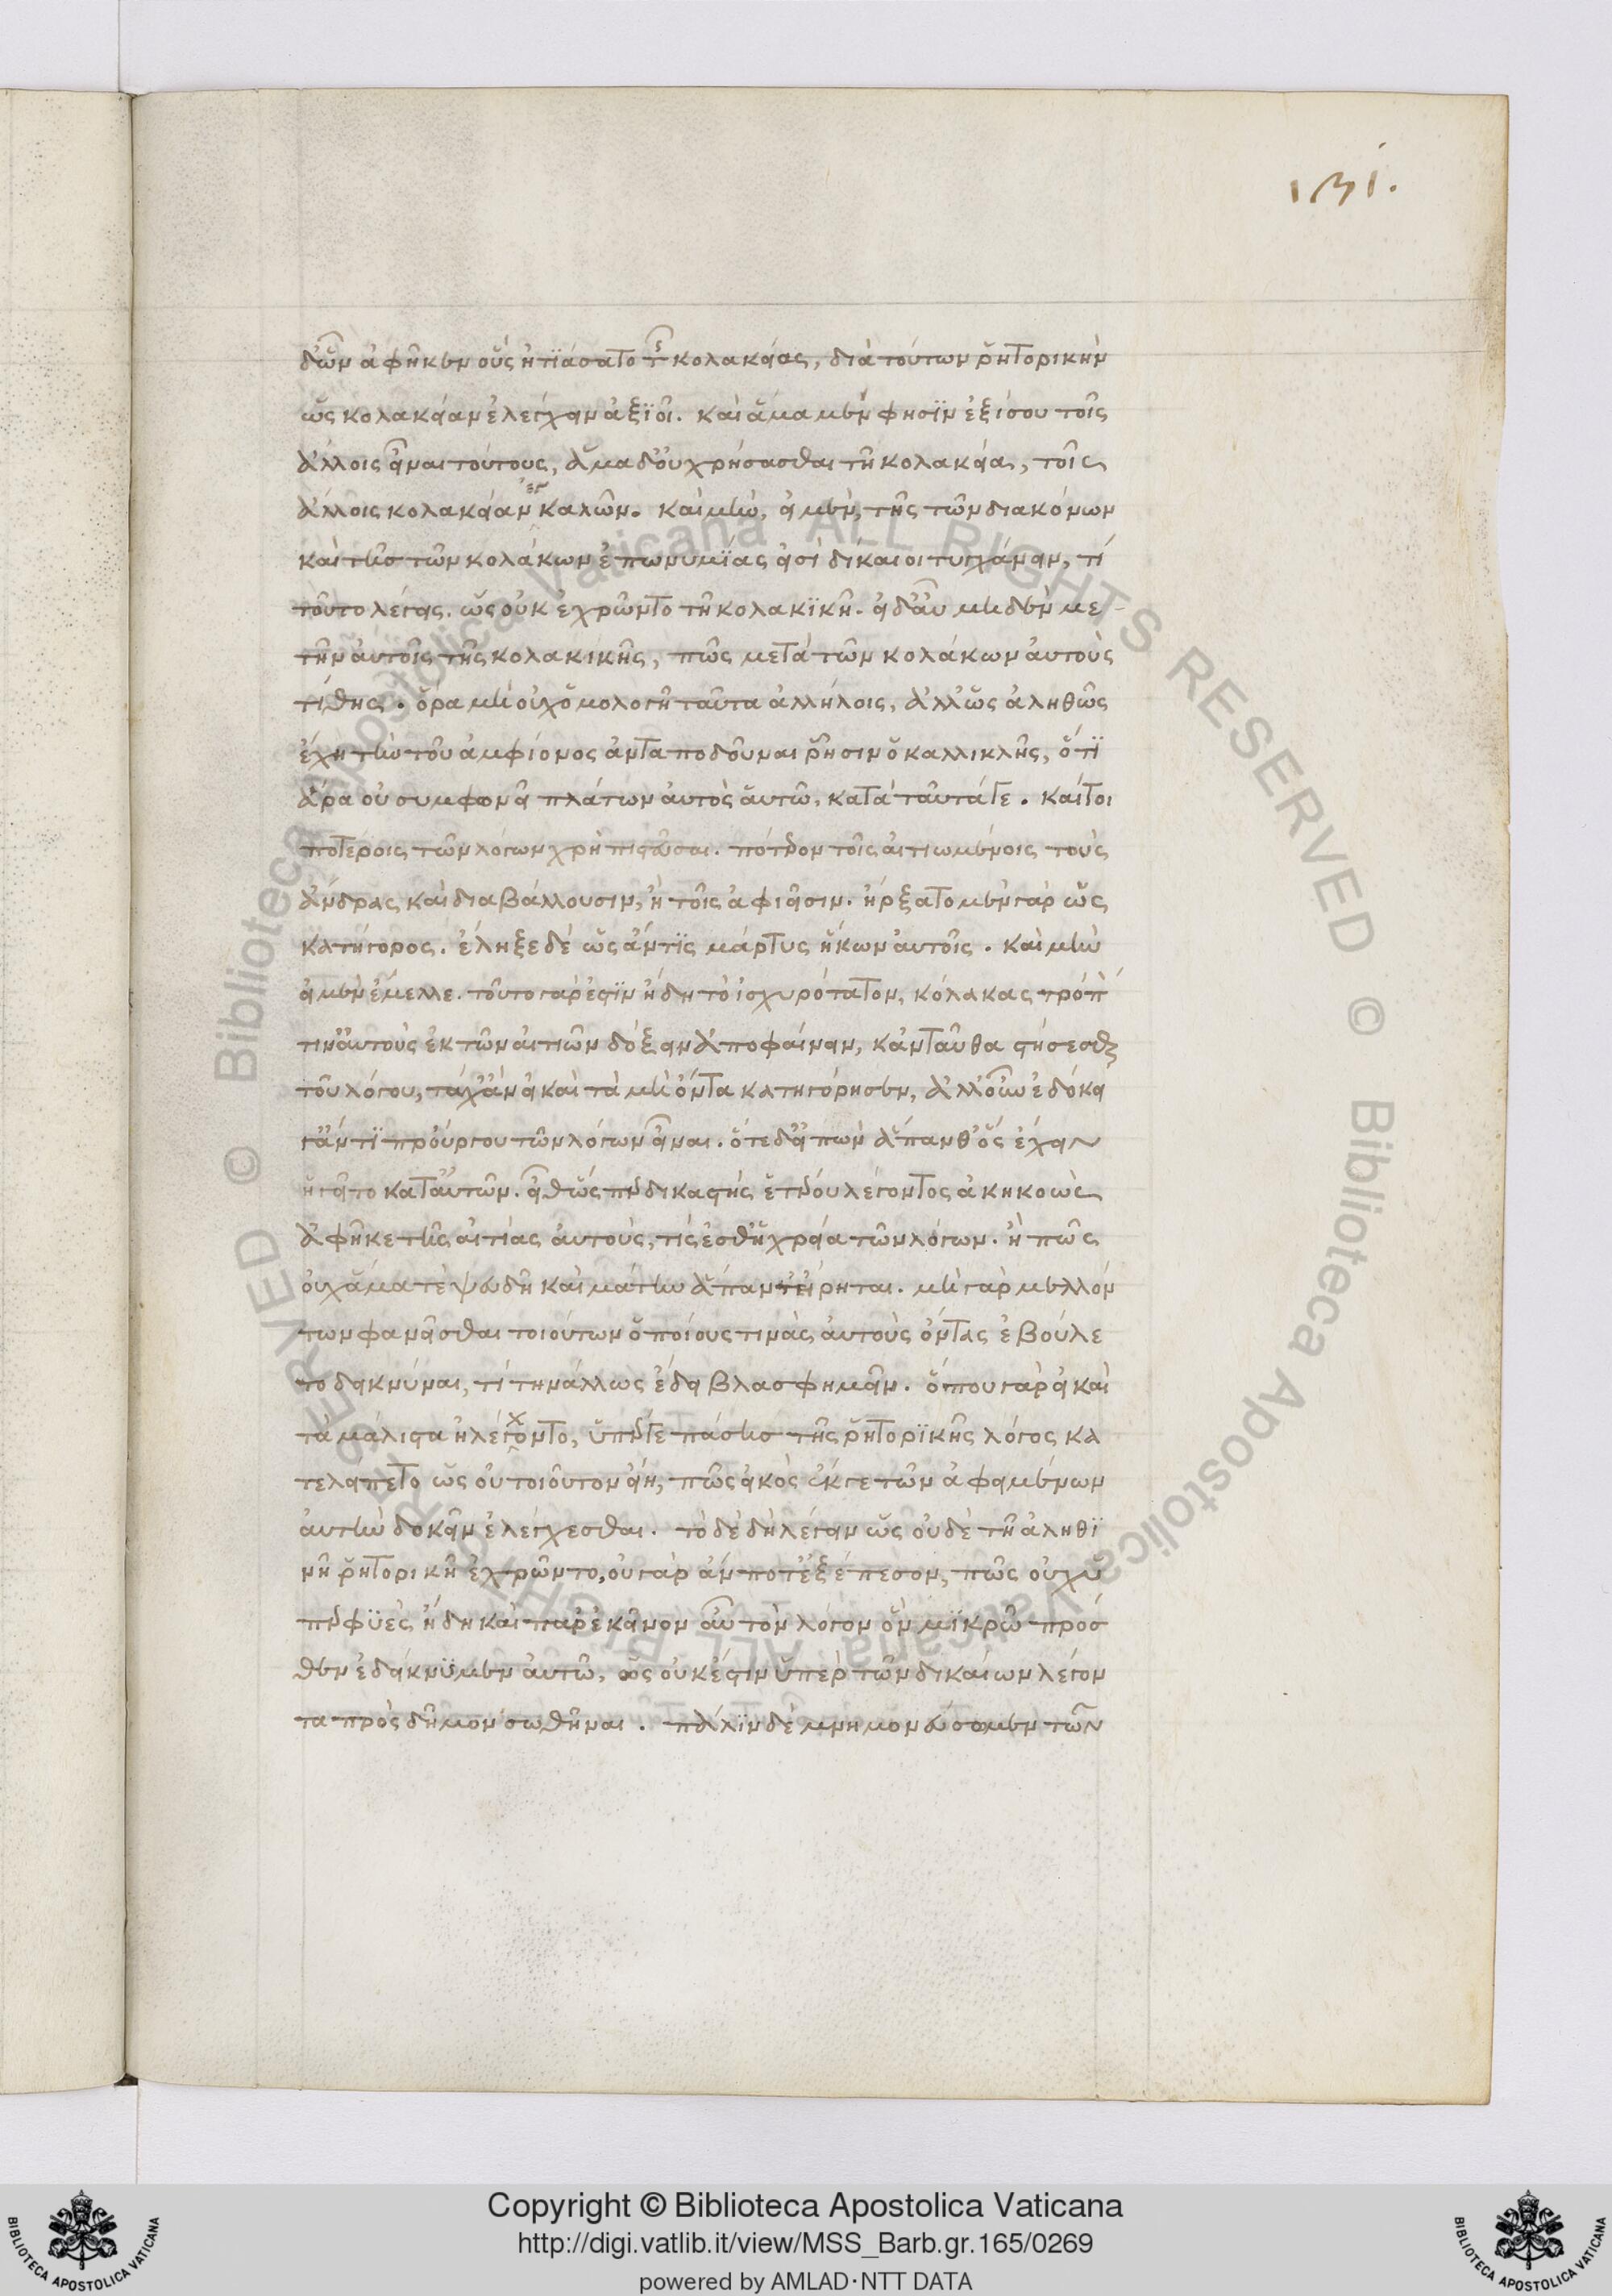 131.
δ' ὧν ἀφῆκεν οὓς ἠτιάσατο τῆς κολακείας, διὰ τούτων ῥητορικὴν
ὡς κολακείαν ἐλέγχειν ἀξιοῖ. καὶ ἅμα μὲν φησὶν ἐξίσου τοῖς
ἄλλοις εἶναι τούτους, ἅμα δ' οὐ χρήσασθαι τῇ κολακείᾳ, τοῖς
ἄλλοις κολακείαν καλῶν. καὶ μὴν, εἰ μὲν, τῆς τῶν διακόνων
καὶ τῆς τῶν κολάκων ἐπωνυμίας εἰσὶ δίκαιοι τυγχάνειν, τί
τοῦτο λέγεις. ὡς οὐκ ἐχρῶντο τῇ κολακικῇ. εἰ δ' αὖ μηδὲν με
τῆν αὐτοῖς τῆς κολακικῆς, πῶς μετὰ τῶν κολάκων αὐτοὺς
τίθης. ὅρα μὴ οὐχ ὁμολογῇ ταῦτα ἀλλήλοις, ἀλλ' ὡς ἀληθῶς
ἔχῃ τὴν τοῦ ἀμφίονος ἀνταποδοῦναι ῥῆσιν ὁ καλλικλῆς, ὅτι
ἄρα οὐ συμφωνεῖ πλάτων αὐτὸς αὑτῷ, κατὰ ταῦτά γε. καίτοι
ποτέροις τῶν λόγων χρὴ πιστεῦσαι. πότερον τοῖς αἰτιωμένοις τοὺς
ἄνδρας καὶ διαβάλλουσιν, ἢ τοῖς ἀφιεῖσιν. ἤρξατο μὲν γὰρ ὡς
κατήγορος. ἔληξε δὲ ὡς ἄν τις μάρτυς ἥκων αὐτοῖς. καὶ μὴν
εἰ μὲν ἔμελλε. τοῦτο γάρ ἐστιν ἤδη τὸ ἰσχυρότατον, κόλακας τρόπ
τιν' αὐτοὺς ἐκ τῶν αἰτιῶν δόξειν ἀποφαίνειν, κἀνταῦθα στήσεσθαι
τοῦ λόγου, τάχ' ἂν εἰ καὶ τὰ μὴ ὄντα κατηγόρησεν, ἀλλ' οὖν ἐδόκει
γ' ἄν τι προὔργου τῶν λόγων εἶναι. ὅτε δ' εἰπὼν ἅπανθ' ὅς' ἔχειν
ἡγεῖτο κατ' αὐτῶν. εἶθ' ὥσπερ δικαστὴς ἑτέρου λέγοντος ἀκηκοὼς
ἀφῆκε τῆς αἰτίας αὐτοὺς, τίς ἔσθ' ἡ χρεία τῶν λόγων. ἢ πῶς
οὐχ ἅμα τε ψευδῆ καὶ μάτην ἅπαντ' εἴρηται. μὴ γὰρ μελλόν
των φανεῖσθαι τοιούτων ὁποίους τινὰς αὐτοὺς ὄντας ἐβούλε
το δεικνύναι, τί τηνάλλως ἔδει βλασφημεῖν. ὅπου γὰρ εἰ καὶ
τὰ μάλιστα ἠλέγχοντο, ὑπέρ γε πάσης τῆς ῥητορικῆς λόγος κα
τελείπετο ὡς οὐ τοιοῦτον εἴη, πῶς εἰκὸς ἔκ γε τῶν ἀφειμένων
αὐτὴν δοκεῖν ἐλέγχεσθαι. τὸ δὲ δὴ λέγειν ὡς οὐδὲ τῇ ἀληθι
νῇ ῥητορικῇ ἐχρῶντο, οὐ γὰρ ἄν ποτ' ἐξέπεσον, πῶς οὐχ ὑ
περφυὲς ἤδη καὶ παρ' ἐκεῖνον αὖ τὸν λόγον ὃν μικρῷ πρόσ
θεν ἐδείκνυμεν αὐτῷ, ὡς οὐκ ἔστιν ὑπὲρ τῶν δικαίων λέγον
τα πρὸς δῆμον σωθῆναι. πάλιν δὲ μνημονεύσομεν τῶν
Copyright © Biblioteca Apostolica Vaticana
http://digi.vatlib.it/view/MSS_Barb.gr.165/0269
powered by AMLAD·NTT DATA